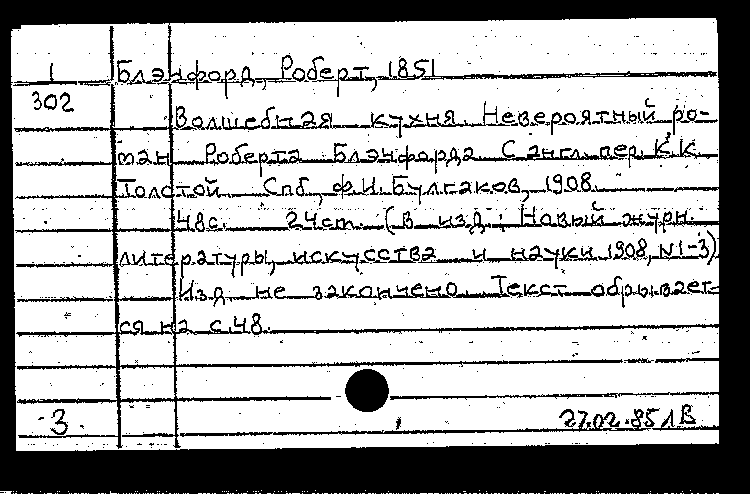 1 Блэнфорд, Роберт, 1851
302
Волшебная кухня. Невероятный ро-
ман Роберта Блэнфорда. С англ. пер. К.К.
Толстой. Спб., Ф.И.Булгаков, 1908.
48с. 24cm. (в изд.: Новый журн.
литературы, искусства и науки. 1908, N1-3)
Изд. не закончено. Текст обрывает-
ся на с.48.
3 27.02.85 ЛВ